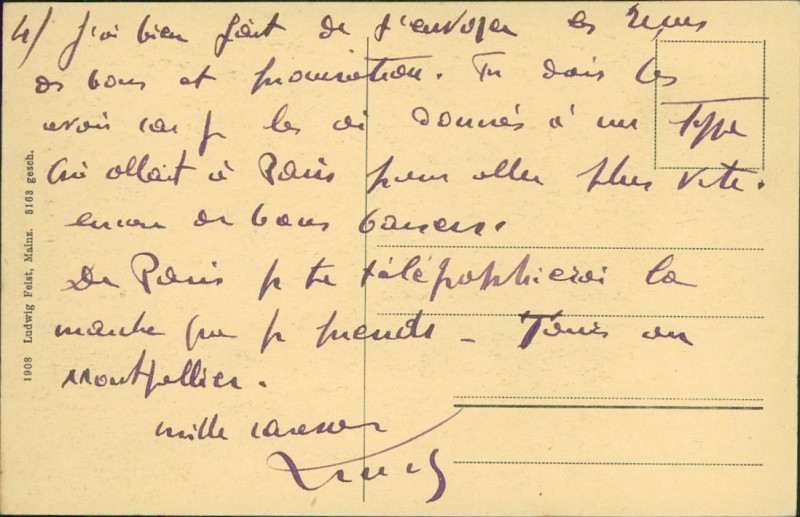 4/ J'ai bien fait de t'envoyer les
de bons et procuration. Tu dois les
avoir car je les ai donnés à un type
qui allait à Paris pour aller plus vite.
encore de bons baisers.
De Paris je te télégraphierai la
marche que je prends - Paris ou
Montpellier.
mille caresses
1908 Ludwig Feist, Mainz. 3163 gesch.